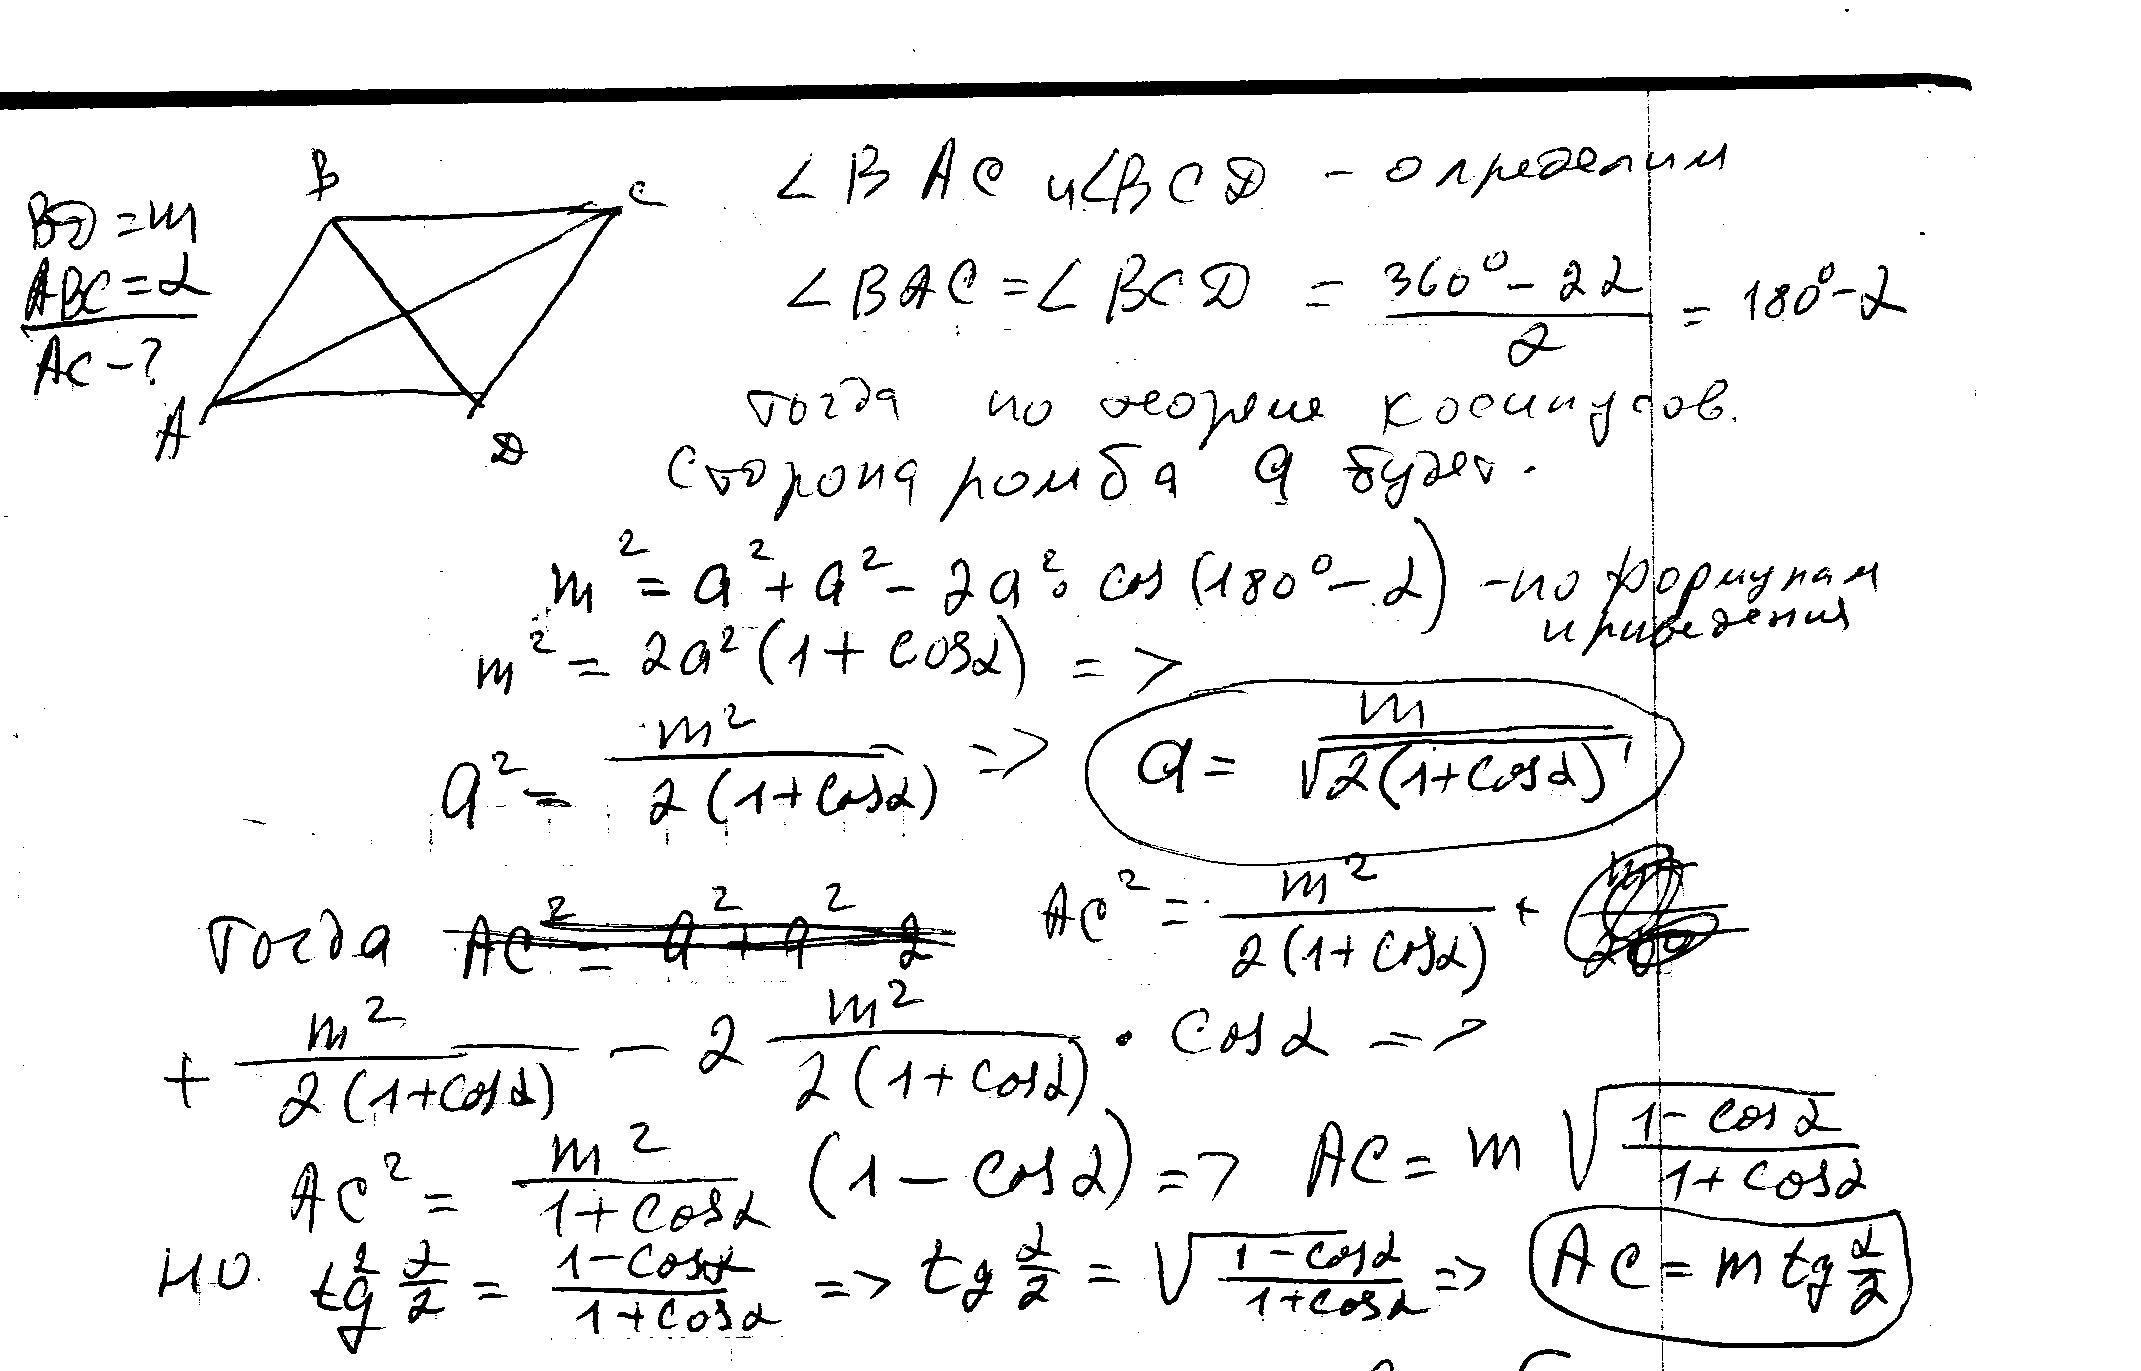 B C
BD = m
ABC = α
AC - ?
A D
∠BAC и ∠BCD - определим
∠BAC = ∠BCD = (360° - 2α)/2 = 180° - α
тогда по теореме косинусов.
сторона ромба a будет.
m² = a² + a² - 2a² · cos(180° - α) - по формулам
приведения
m² = 2a²(1 + cosα) =>
a² = m²/(2(1+cosα)) => a = m/√(2(1+cosα))
тогда AC² = a² + a² 2 AC² = m²/(2(1+cosα)) +
+ m²/(2(1+cosα)) - 2 m²/(2(1+cosα)) · cosα =>
AC² = m²/(1+cosα) (1 - cosα) => AC = m √((1-cosα)/(1+cosα))
но tg² α/2 = (1-cosα)/(1+cosα) => tg α/2 = √((1-cosα)/(1+cosα)) => AC = m tg α/2